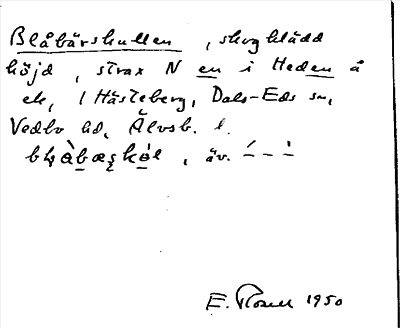 Blåbärskullen, skogklädd
höjd, strax N en i Heden å
ek, 1 Hästeberg, Dals-Eds sn,
Vedbo hd, Älvsb. l.
, äv. – – –
E. Rosell 1950